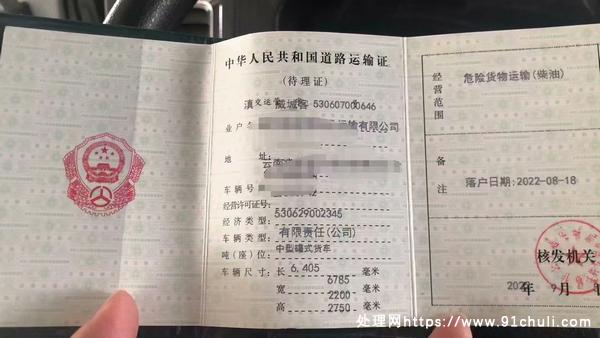 中华人民共和国道路运输证
(待理证)
530607000646
业户名
运输有限公司
地 址:
车辆号
经营许可证号:
530629002345
经济类型:
有限责任(公司)
车辆类型:
中型罐式货车
吨(座)位:
6,405
车辆尺寸: 长 6785 毫米
宽 2200 毫米
高 2750 毫米
经营范围
危险货物运输(柴油)
备注
落户日期:2022-08-18
核发机关
年 月
处理网https://www.91chuli.com